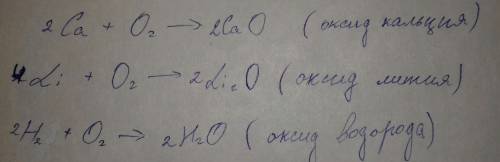 2Ca + O₂ → 2CaO (оксид кальция)
4Li + O₂ → 2Li₂O (оксид лития)
2H₂ + O₂ → 2H₂O (оксид водорода)